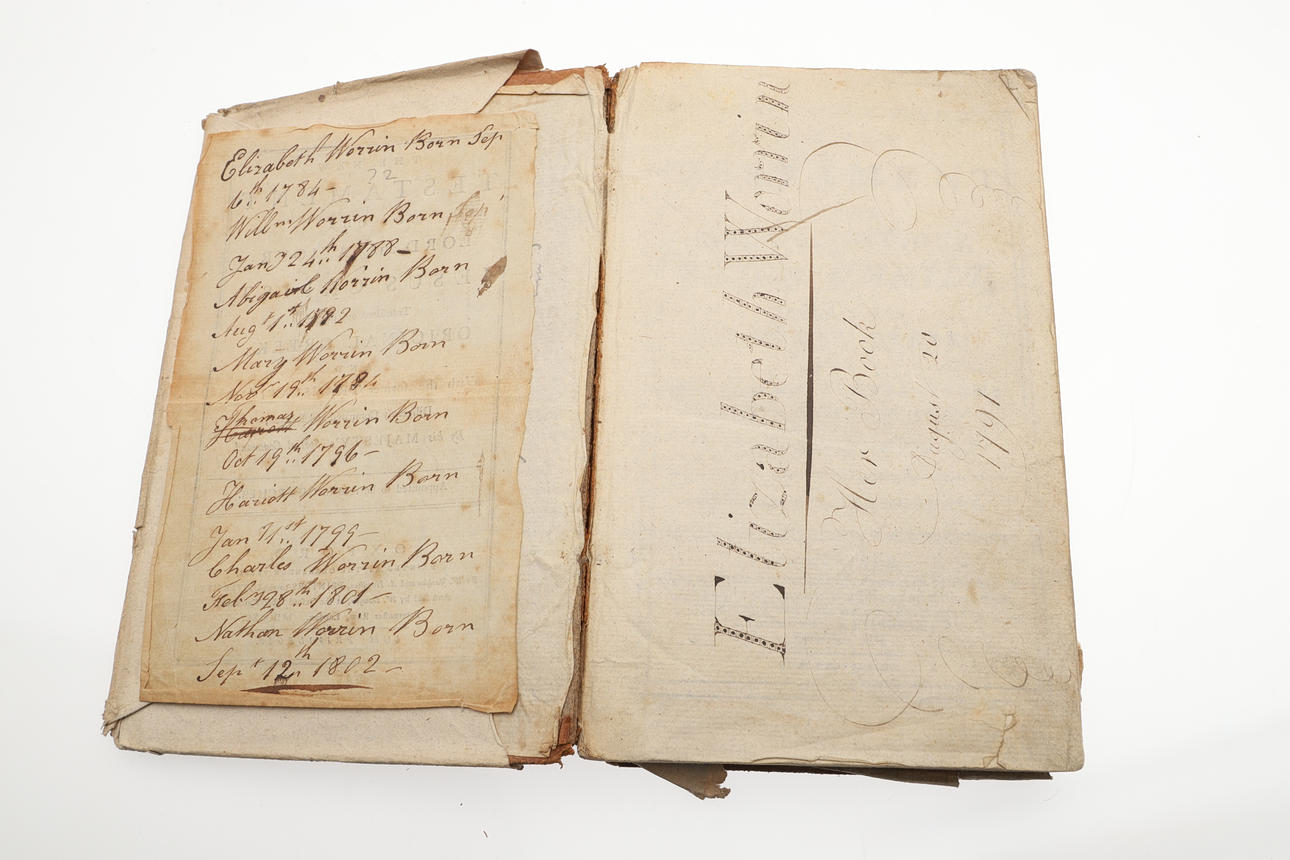 Elizabeth Worrin Born Sep
6th 1784-
Willm Worrin Born
Jany 24th 1788-
Abigairl Worrin Born
Augt 1st 1792
Mary Worrin Born
Novr 19th 1784
Thomas
Hariott Worrin Born
Oct 19th 1796-
Hariott Worrin Born
Jan 31st 1799-
Charles Worrin Born
Feby 28th 1801-
Nathan Worrin Born
Sept 12th 1802-
Elizabeth Worrin
Her Book
August 20
1791